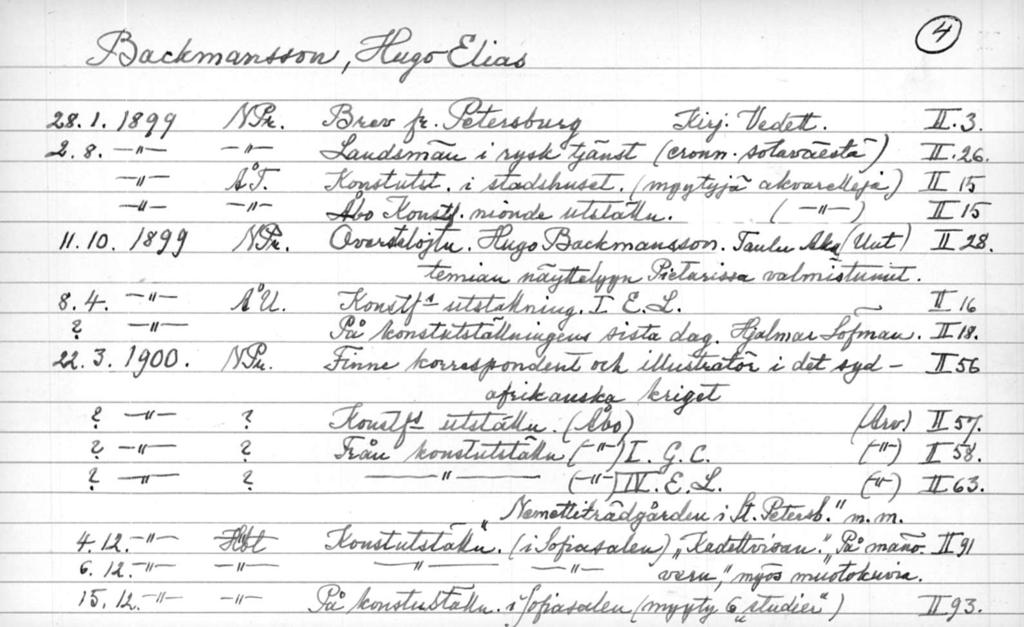 4
Backmansson, Hugo Elias
28.1.1899 NPr. Brev fr. Petersburg Kirj. Vedett. II.3.
2.8. —"— —"— Landsmän i rysk tjänst (cronn. sotaväestä) II.26.
—"— ÅT. Konstutst. i stadshuset. (myytyjä akvarelleja) II 15
—"— —"— Åbo Konstf. nionde utställn. (—"—) II 15
11.10.1899 NPr. Överstelöjtn. Hugo Backmansson. Taulu Aka (Uut) II 28.
temian näyttelyyn Pietarissa valmistunut.
8.4. —"— ÅU. Konstfs utställning. I E.L. II 16
? —"— På konstutställningens sista dag. Hjalmar Löfman. II 18.
22.3.1900. NPr. Finne korrespondent och illustratör i det syd-
afrikanska kriget II 56
? —"— ? Konstfs utställn. (Åbo) (Arv.) II 57.
? —"— ? Från konstutställn (—"—) I. G.C. (—"—) II 58.
? —"— ? —"— (—"—) IV. E.L. (—"—) II 63.
"Nemettiträdgården i St. Petersb." m.m.
4.12. —"— Hbl Konstutställn. (i Sofiasalen) "Kadettvisan." På manö- II 91
6.12. —"— —"— —"— —"— vern," myös muotokuvia.
15.12. —"— —"— På konstutställn. i Sofiasalen (myyty 6 "studier") II 93.